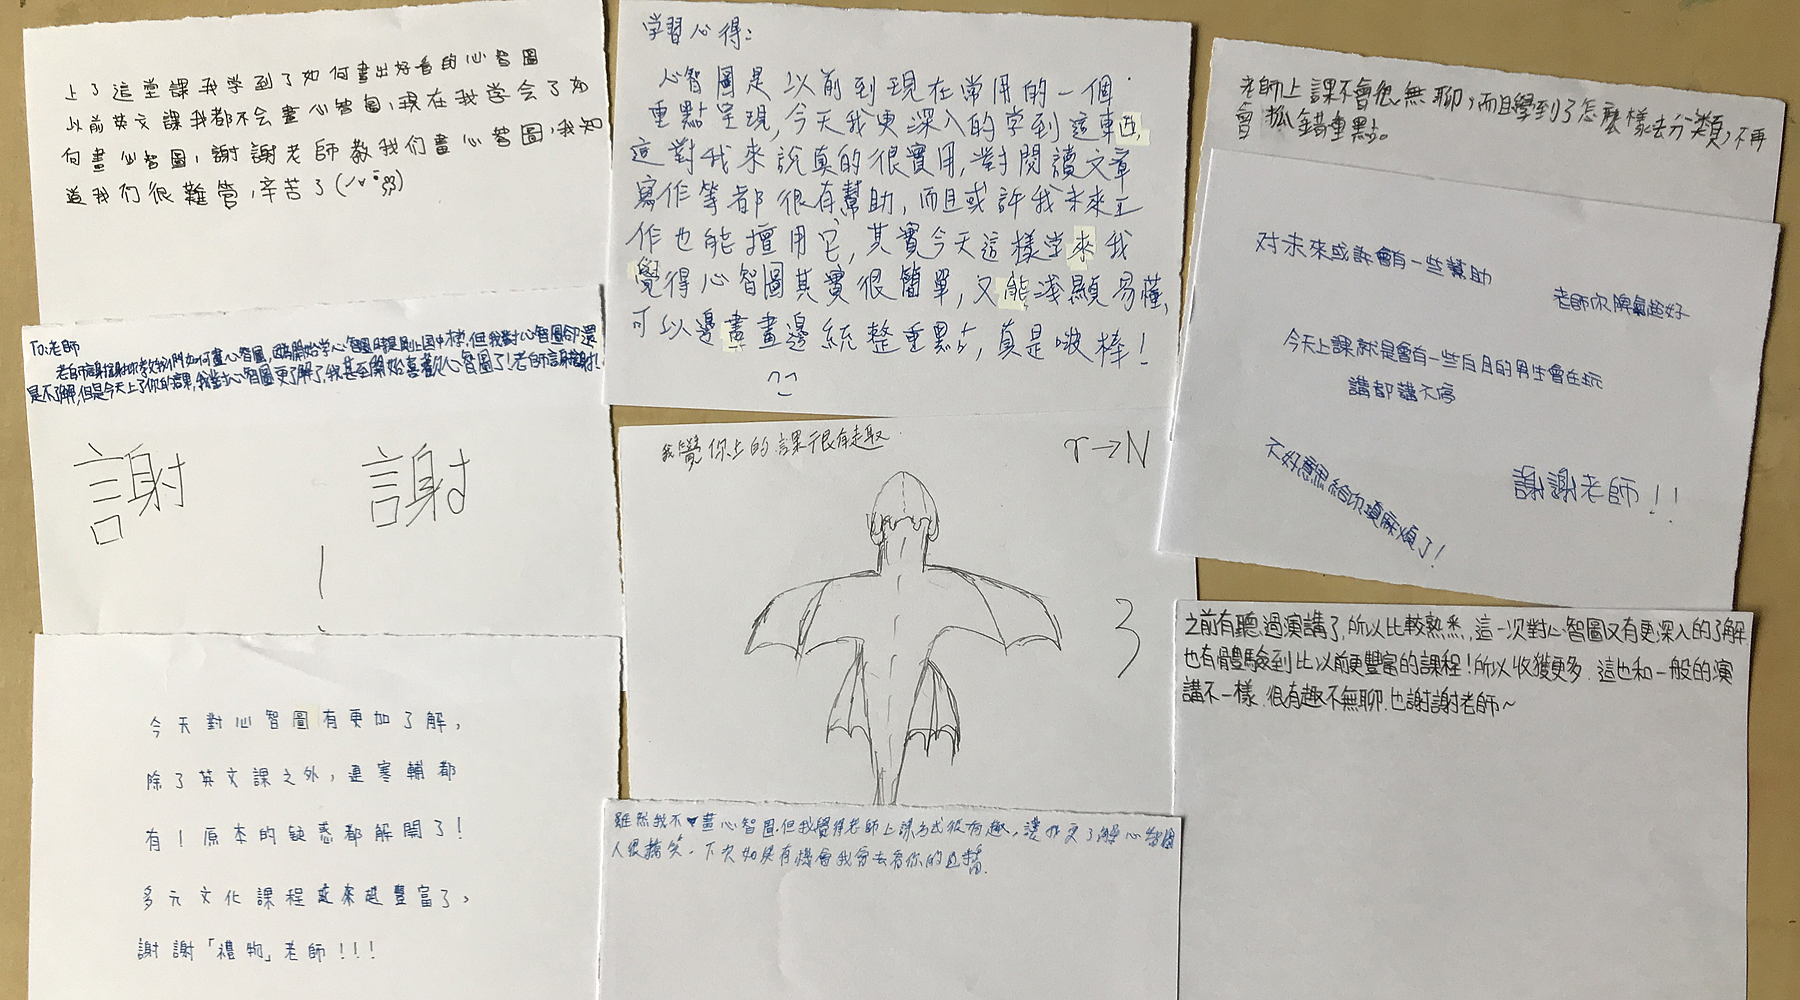 上了這堂課我学到了如何畫出好看的心智圖
以前英文課我都不会畫心智圖,現在我学会了如
何畫心智圖,謝謝老師教我们畫心智圖,我知
道我们很難管,辛苦了
To:老師
老師謝謝你教我們如何畫心智圖,因為開始学心智圖時是剛上国中裡,但我對心智圖卻還
是不了解,但是今天上了你的課,我對心智圖更了解了,我甚至開始喜歡心智圖了!老師謝謝!
謝 謝
!
今天對心智圖有更加了解,
除了英文課之外,連寒輔都
有!原本的疑惑都解開了!
多元文化課程越來越豐富了,
謝謝「禮物」老師!!!
学習心得:
心智圖是以前到現在常用的一個
重點呈現,今天我更深入的学到這東西,
這對我來說真的很實用,對閱讀文章
寫作等都很有幫助,而且或許我未來工
作也能擅用它,其實今天這樣堂來我
覺得心智圖其實很簡單,又能淺顯易懂,
可以邊畫畫邊統整重點,真是啵棒!
我覺你上的課很有趣
r→N
3
雖然我不♥畫心智圖,但我覺得老師上課方式很有趣,讓我更了解心智圖
人很搞笑。下次如果有機會我會去看你的直播.
老師上課不會很無聊,而且學到了怎麼樣去分類,不再
會抓錯重點。
対未來或許會有一些幫助
老師你脾氣超好
今天上課就是會有一些白目的男生會在玩
講都講不停
不好意思給你添麻煩了!
謝謝老師!!
之前有聽過演講了,所以比較熟悉,這一次對心智圖又有更深入的了解
也有體驗到比以前更豐富的課程!所以收獲更多.這也和一般的演
講不一樣.很有趣不無聊.也謝謝老師~